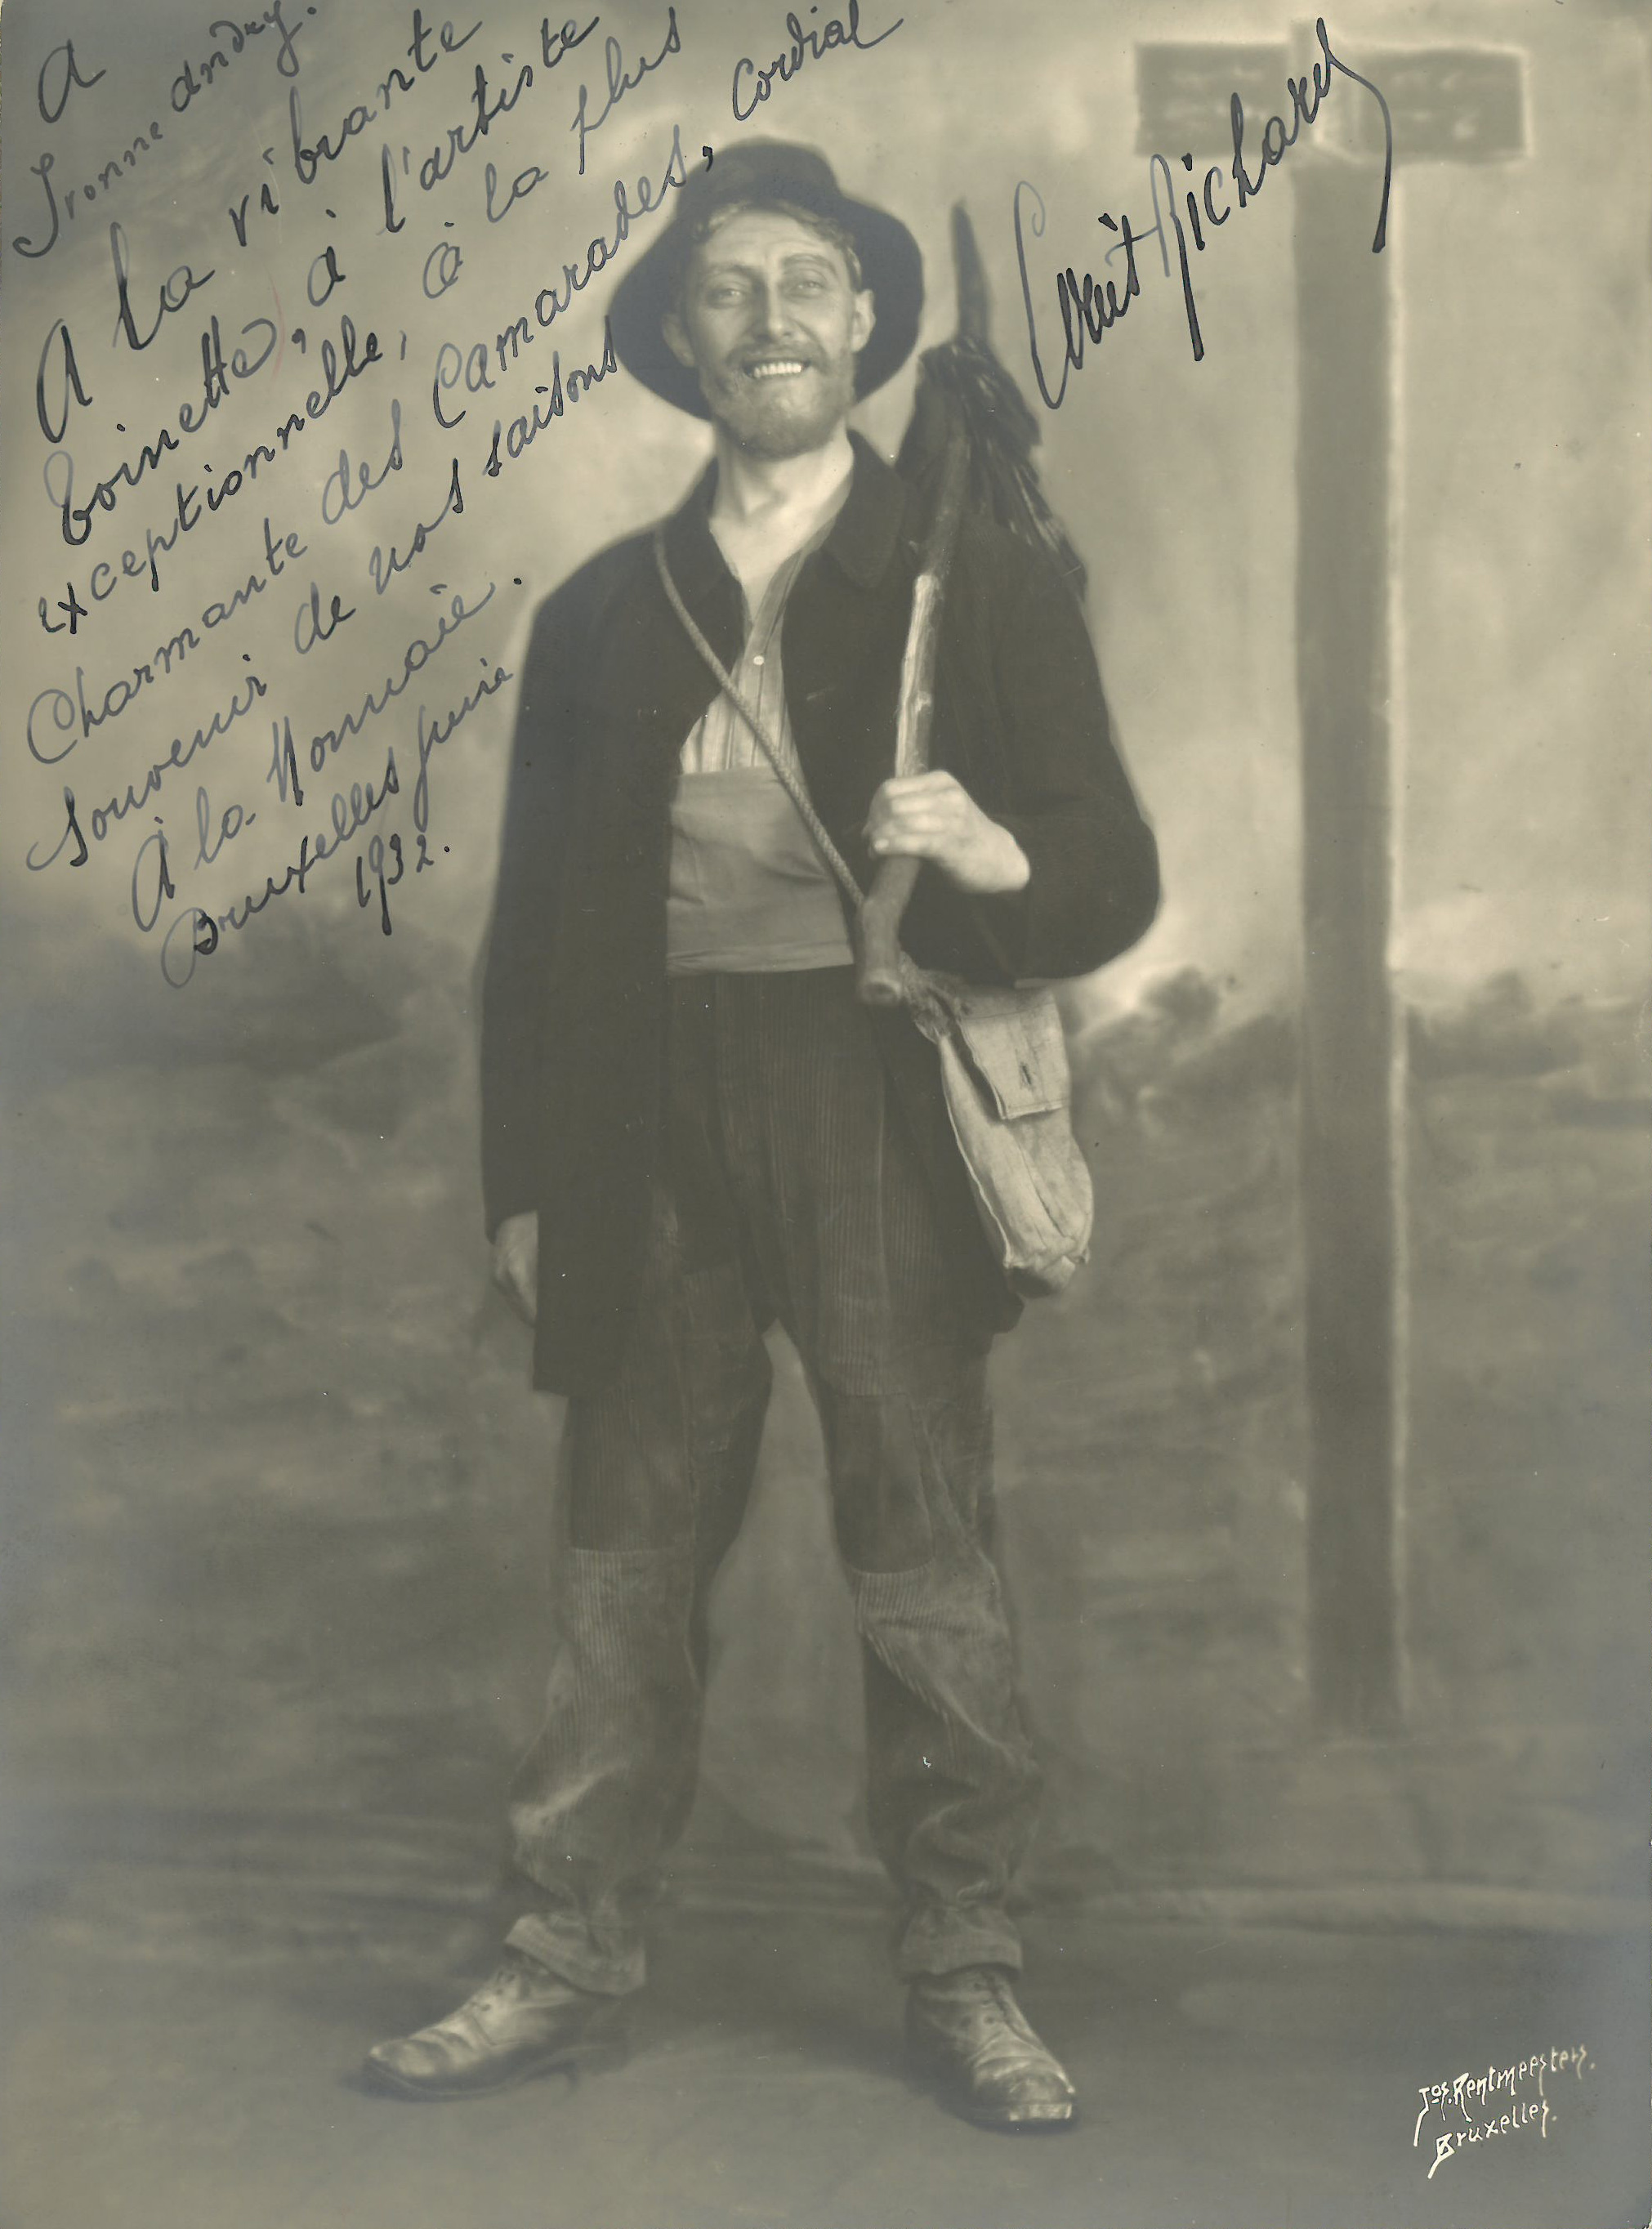 A
Yvonne Andry.
A la vibrante
Toinette, à l'artiste
exceptionnelle, à la plus
Charmante des Camarades, Cordial
Souvenir de nos saisons
à la Monnaie.
Bruxelles juin
1932.
Richard
Jos. Rentmeesters.
Bruxelles.